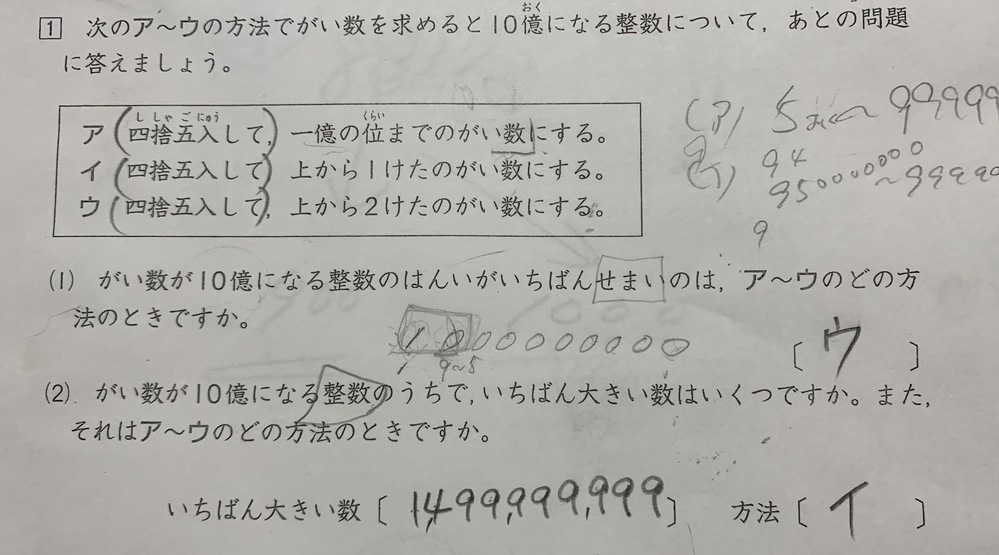 1 次のア～ウの方法でがい数を求めると10億になる整数について，あとの問題
に答えましょう。
ア（四捨五入して，）一億の位までのがい数にする。
イ（四捨五入して）上から1けたのがい数にする。
ウ（四捨五入して），上から2けたのがい数にする。
(ア) 5おく～99999
(イ) 94
95000000～99999
9
(1) がい数が10億になる整数のはんいがいちばんせまいのは，ア～ウのどの方
法のときですか。
1000000000
9～5
〔 ウ 〕
(2) がい数が10億になる整数のうちで，いちばん大きい数はいくつですか。また，
それはア～ウのどの方法のときですか。
いちばん大きい数〔 1,499,999,999 〕 方法〔 イ 〕